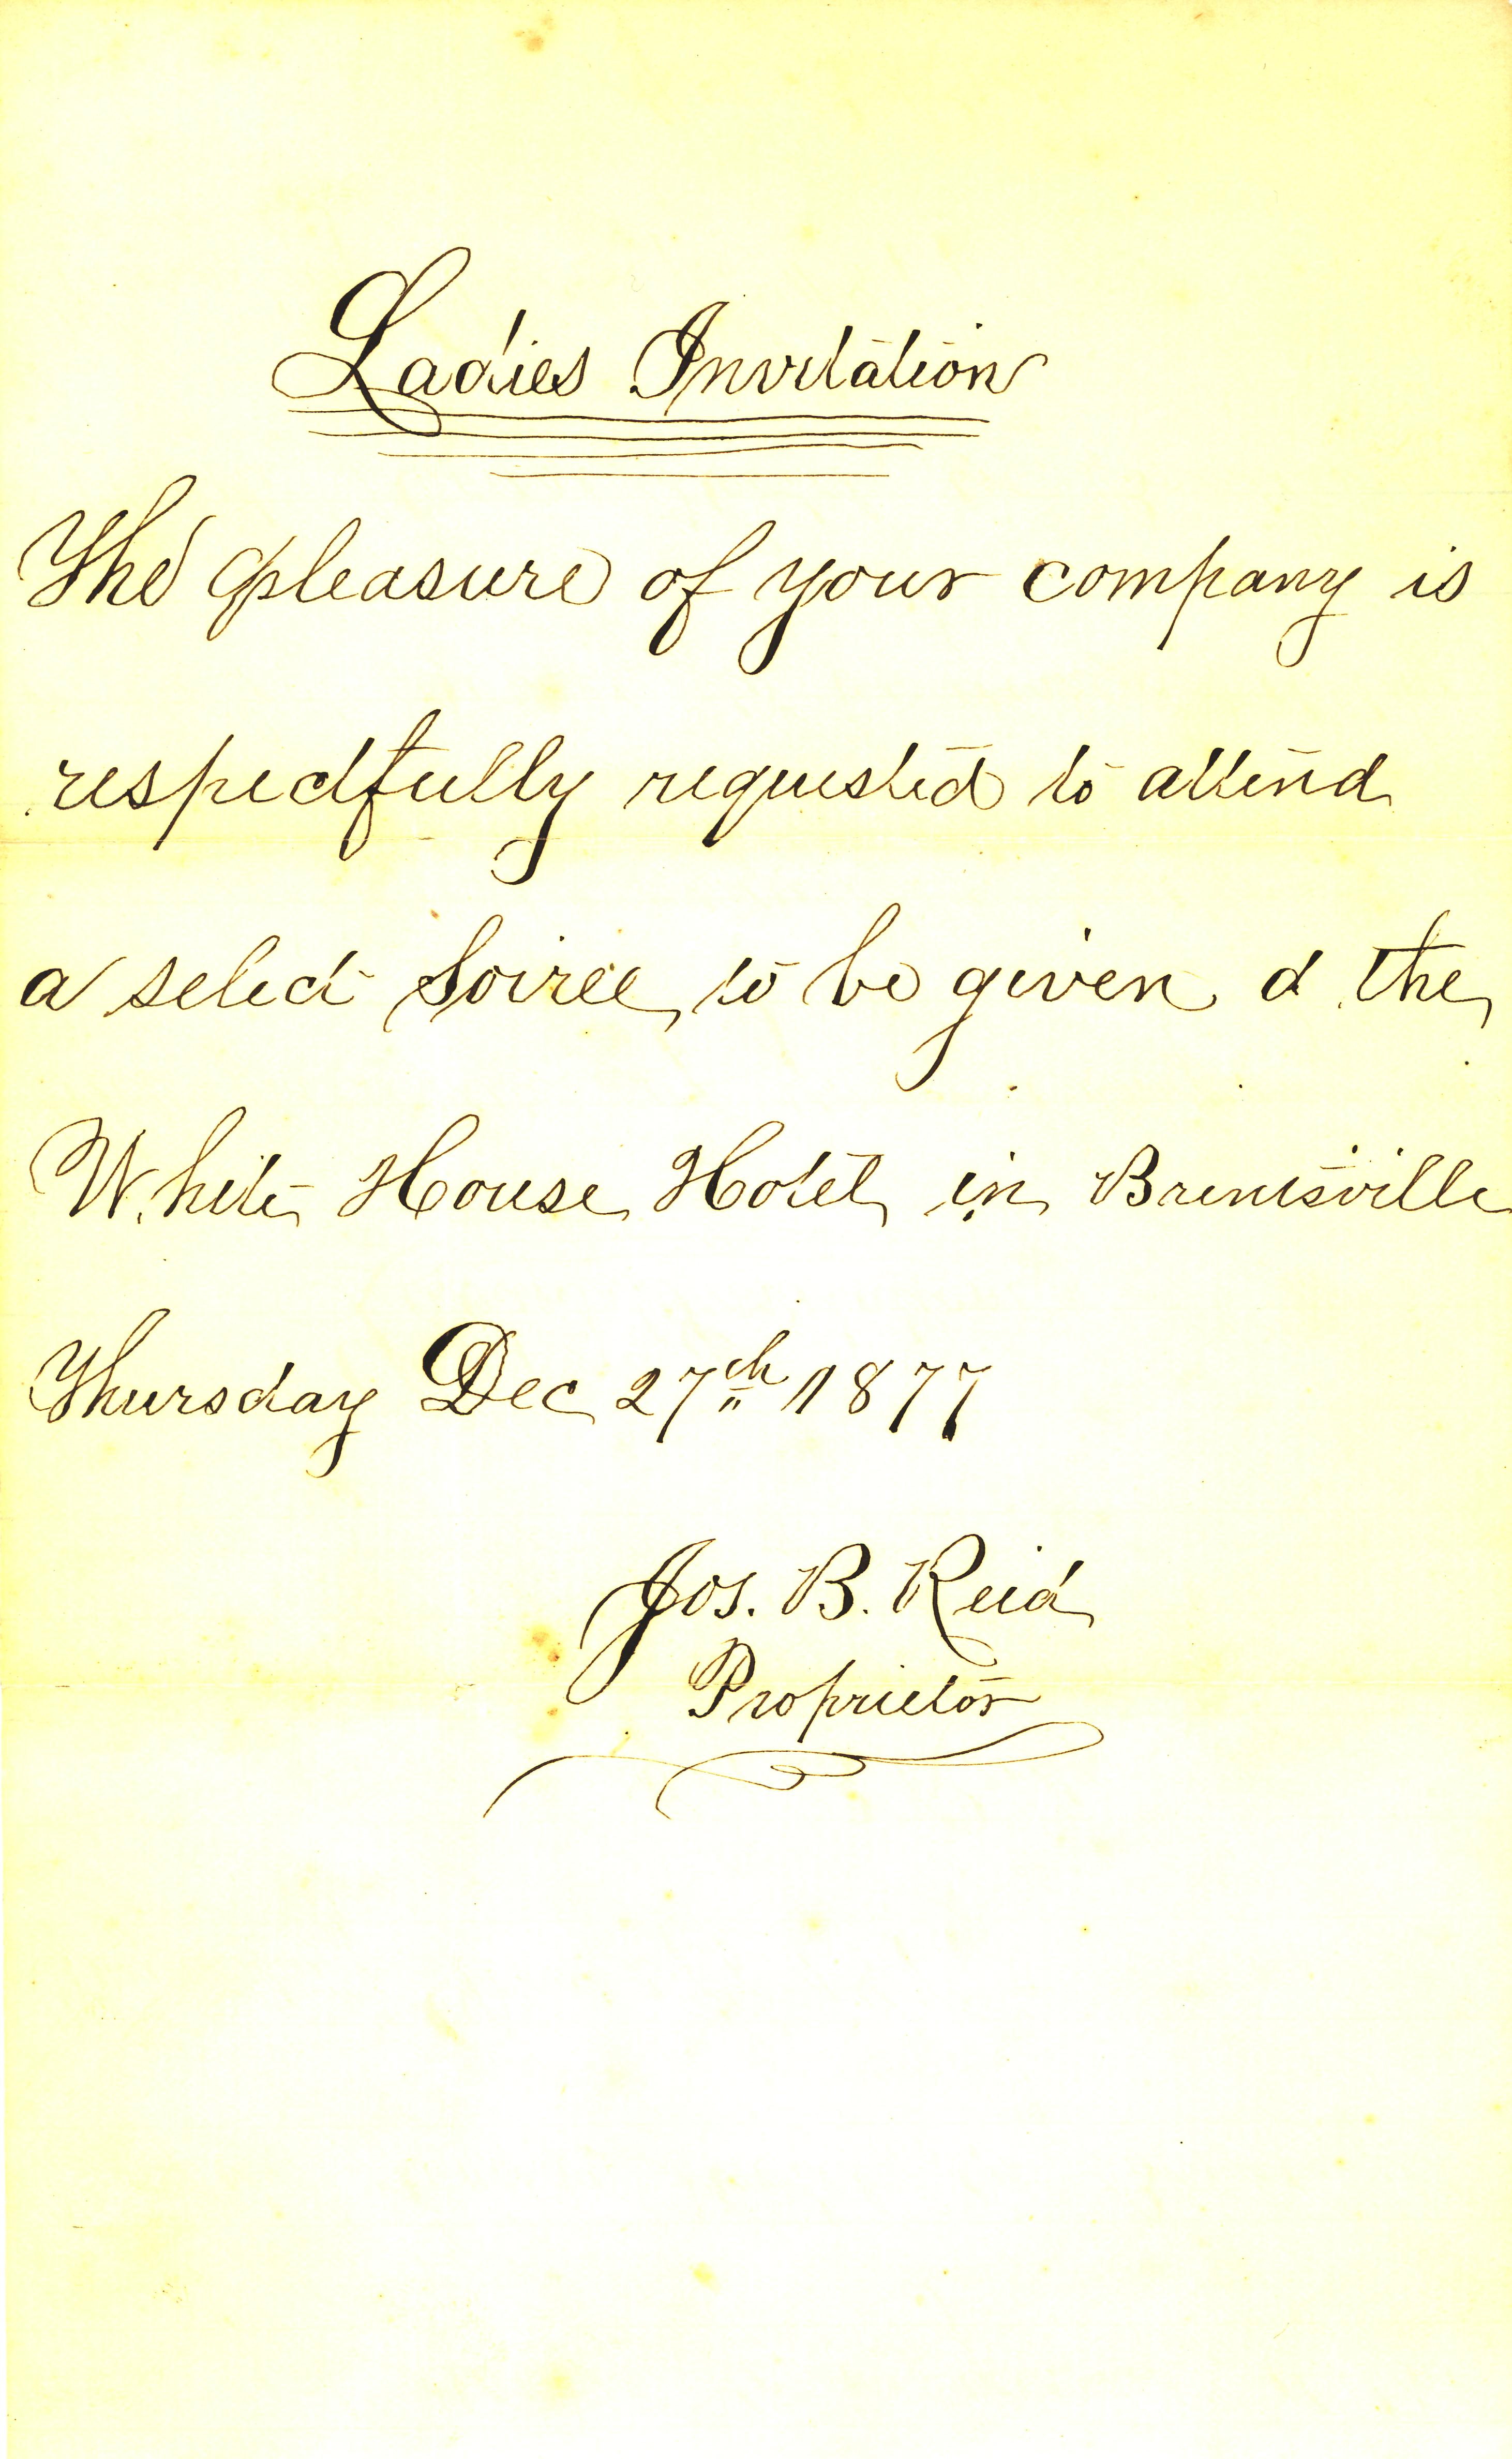 Ladies Invitation
The pleasure of your company is
respectfully requested to attend
a select Soiree, to be given at the
White House Hotel, in Brentsville
Thursday Dec 27th 1877
Jos. B. Reid
Proprietor